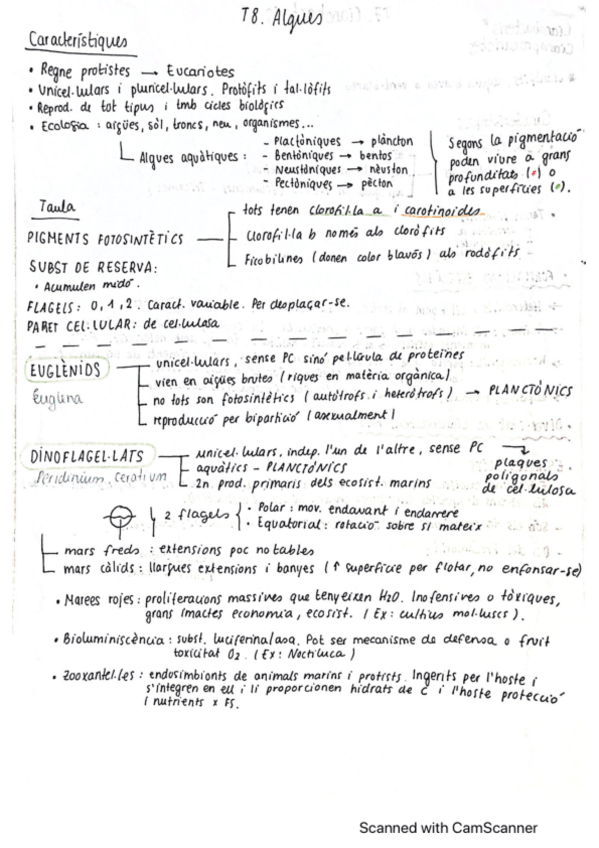 T8. Algues
Característiques
• Regne protistes → Eucariotes
• Unicel·lulars i pluricel·lulars. Protòfits i tal·lòfits
• Reprod. de tot tipus i tmb cicles biològics
• Ecologia : aigües, sòl, troncs, neu, organismes...
Algues aquàtiques :
- Plactòniques → plàncton
- Bentòniques → bentos
- Neustòniques → nèuston
- Pectòniques → pècton
Segons la pigmentació
poden viure a grans
profunditats (•) o
a les superfícies (•).
Taula
PIGMENTS FOTOSINTÈTICS
tots tenen clorofil·la a i carotinoides
clorofil·la b només als cloròfits
Ficobilines (donen color blavós) als rodòfits
SUBST DE RESERVA:
• Acumulen midó.
FLAGELS : 0, 1, 2. Caract. variable. Per desplaçar-se.
PARET CEL·LULAR: de cel·lulosa
EUGLÈNIDS
Euglena
unicel·lulars, sense PC sinó pel·lícula de proteïnes
vien en aigües brutes (riques en matèria orgànica)
no tots son fotosintètics (autòtrofs i heteròtrofs) → PLANCTÒNICS
reproducció per bipartició (asexualment)
DINOFLAGEL·LATS
Peridinium, Ceratium
unicel·lulars, indep. l'un de l'altre, sense PC
plaques
poligonals
de cel·lulosa
aquàtics - PLANCTÒNICS
2n. prod. primaris dels ecosist. marins
2 flagels
• Polar : mov. endavant i endarrere
• Equatorial : rotació sobre si mateix
mars freds : extensions poc notables
mars càlids : llargues extensions i banyes (↑ superfície per flotar, no enfonsar-se)
• Marees rojes : proliferacions massives que tenyeixen H2O. Inofensives o tòxiques,
grans imactes economia, ecosist. (Ex : cultius mol·luscs).
• Bioluminiscència : subst. luciferina/asa. Pot ser mecanisme de defensa o fruit
toxicitat O2. (Ex : Noctiluca)
• Zooxantel·les : endosimbionts de animals marins i protists. Ingerits per l'hoste i
s'integren en ell i li proporcionen hidrats de C i l'hoste protecció
i nutrients x FS.
Scanned with CamScanner